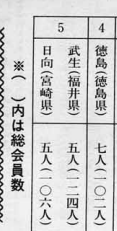 4
徳島（徳島県）
七人（一〇二人）
5
武生（福井県）
五人（一二四人）
日向（宮崎県）
五人（一〇六人）
※（　）内は総会員数